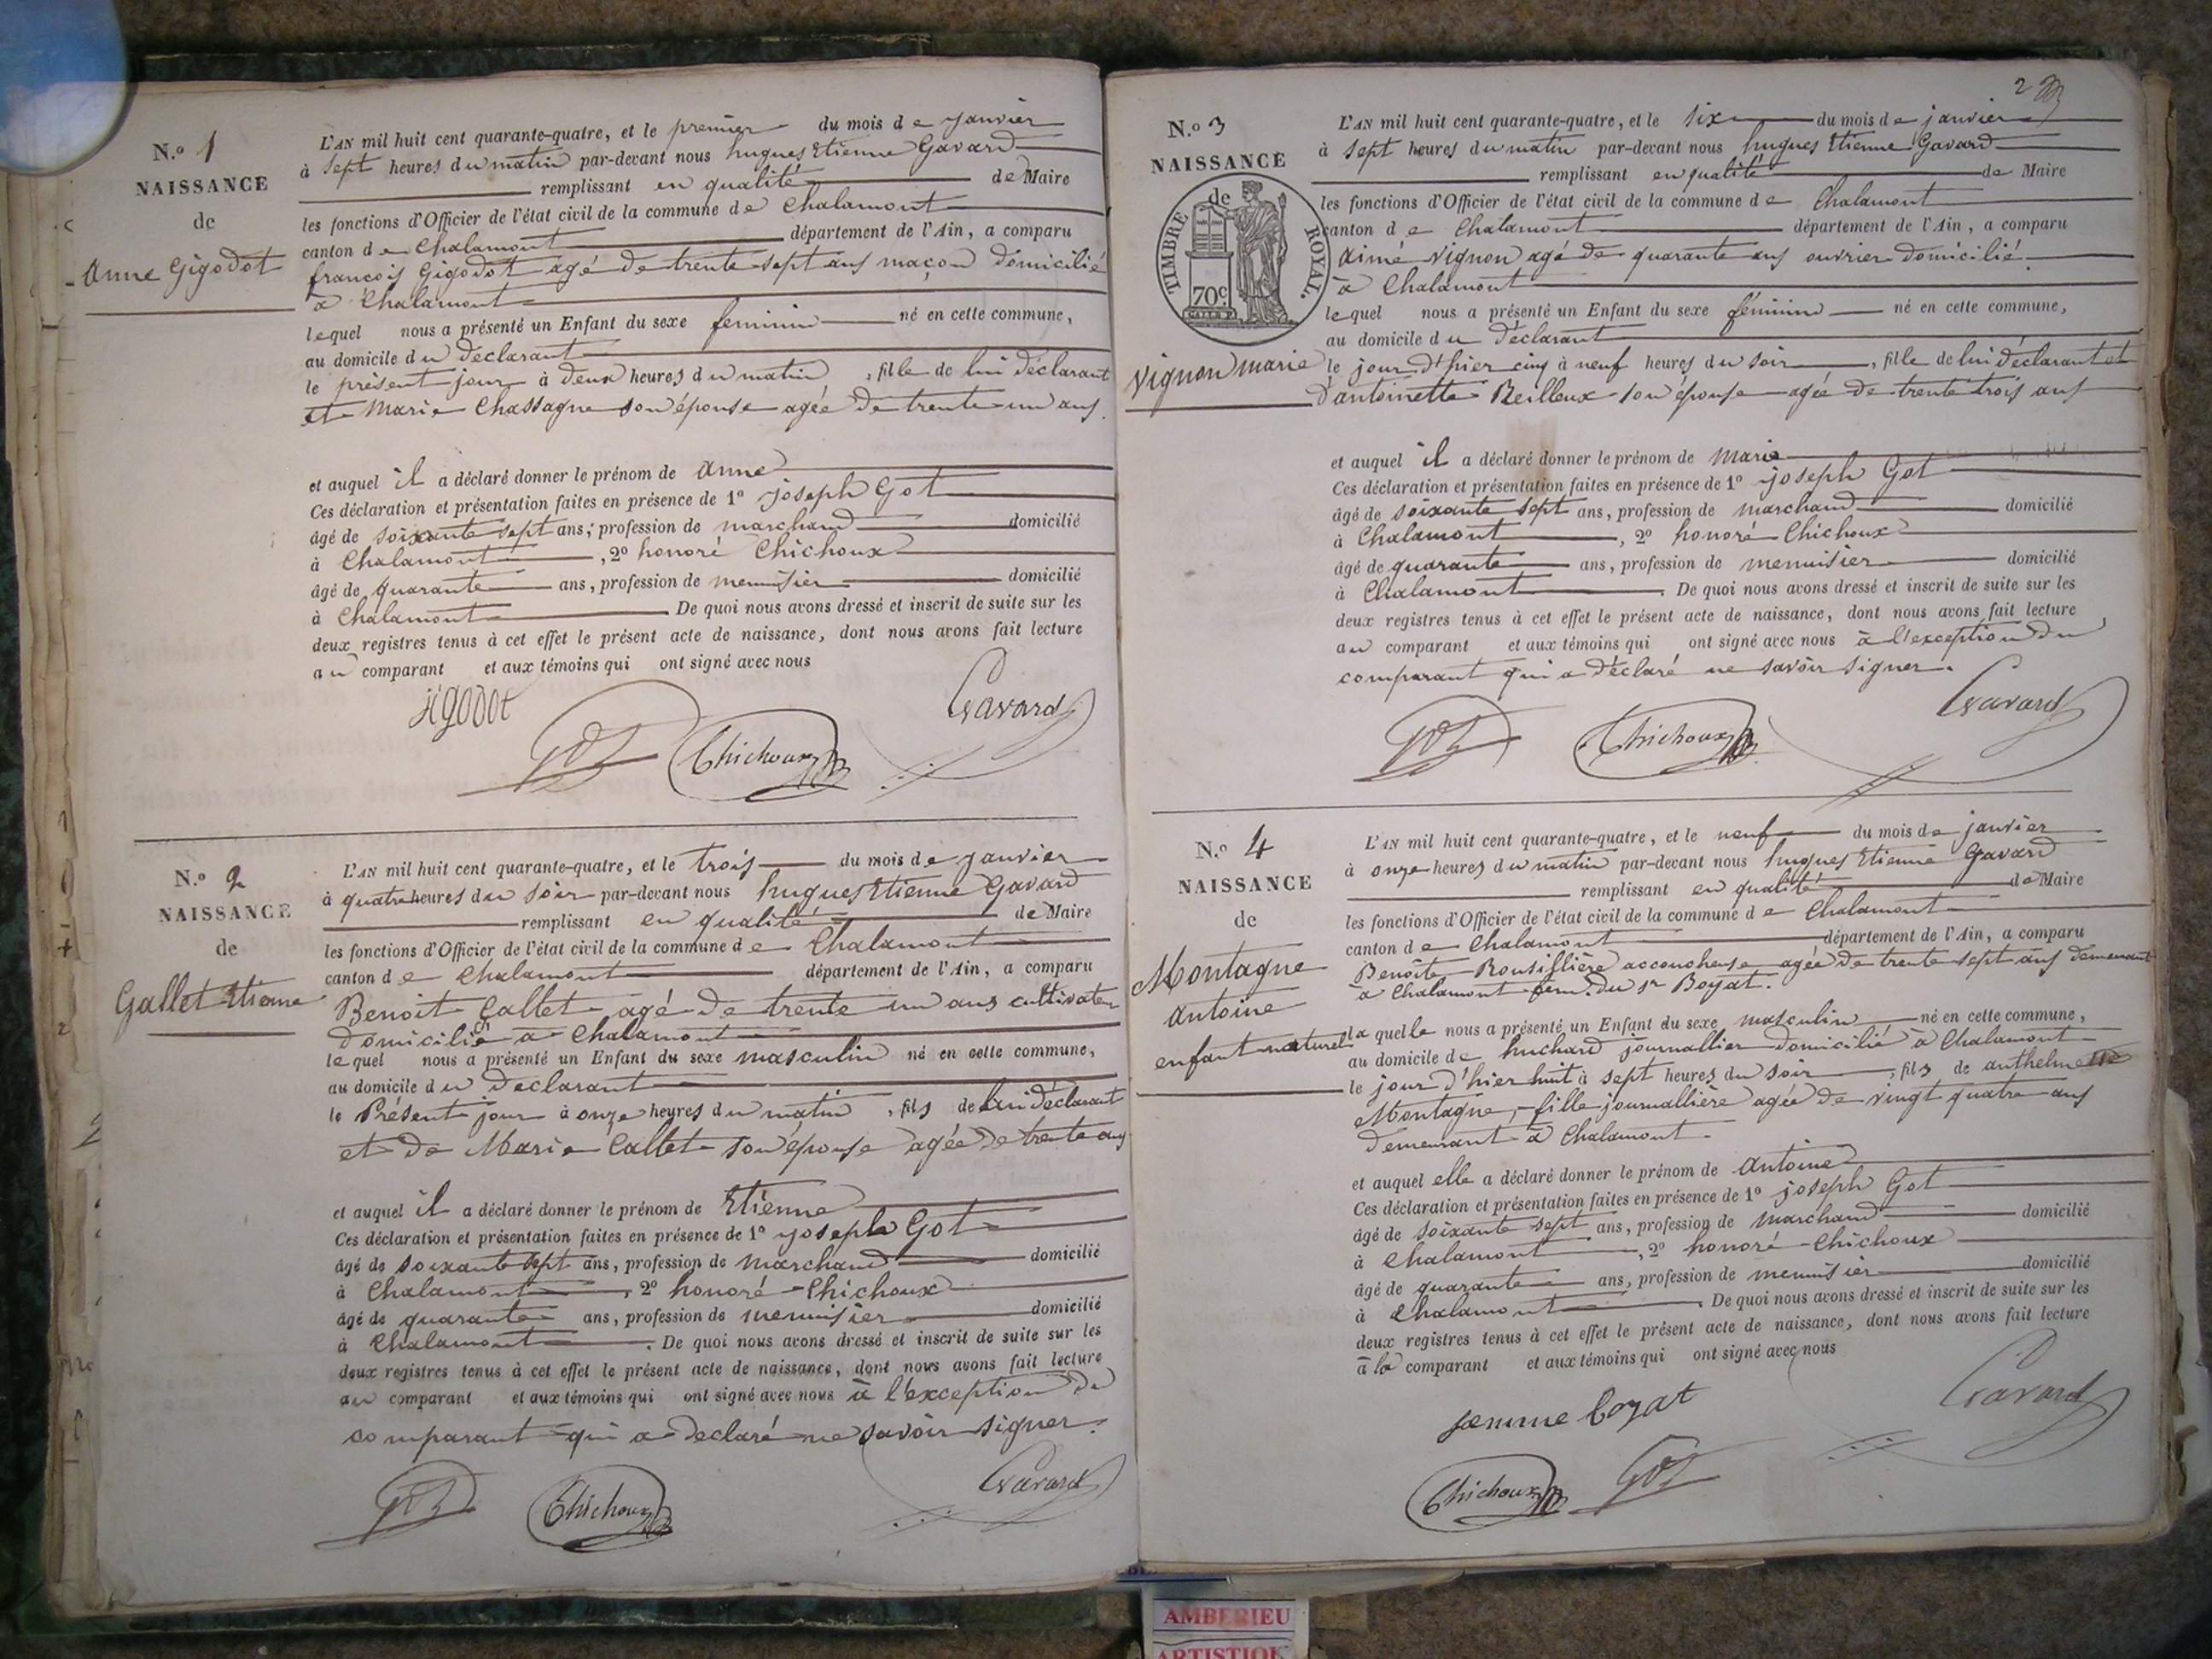 N.o 1
NAISSANCE
de
Anne Gigodot
L'AN mil huit cent quarante-quatre, et le premier du mois de janvier
à sept heures du matin par-devant nous hugues Etienne Gavard
remplissant en qualité de Maire
les fonctions d'Officier de l'état civil de la commune de Chalamont
canton de Chalamont département de l'Ain, a comparu
françois Gigodot agé de trente-sept ans maçon domicilié
à Chalamont
lequel nous a présenté un Enfant du sexe feminin né en cette commune,
au domicile du déclarant
le présent jour à deux heures du matin, fille de lui déclarant
et Marie Chassagne son épouse agée de trente un ans.
et auquel il a déclaré donner le prénom de Anne
Ces déclaration et présentation faites en présence de 1o joseph Got
âgé de soixante sept ans; profession de marchand domicilié
à Chalamont, 2o honoré Chichoux
âgé de quarante ans, profession de menuisier domicilié
à Chalamont. De quoi nous avons dressé et inscrit de suite sur les
deux registres tenus à cet effet le présent acte de naissance, dont nous avons fait lecture
au comparant et aux témoins qui ont signé avec nous
Gavard
Got Chichoux
N.o 2
NAISSANCE
de
Gallet Etienne
L'AN mil huit cent quarante-quatre, et le trois du mois de janvier
à quatre heures du soir par-devant nous hugues Etienne Gavard
remplissant en qualité de Maire
les fonctions d'Officier de l'état civil de la commune de Chalamont
canton de Chalamont département de l'Ain, a comparu
Benoit Gallet agé de trente un ans cultivateur
domicilié à Chalamont
lequel nous a présenté un Enfant du sexe masculin né en cette commune,
au domicile du déclarant
le Présent jour à onze heures du matin, fils de lui déclarant
et de Marie Callet son épouse agée de trente ans
et auquel il a déclaré donner le prénom de Etienne
Ces déclaration et présentation faites en présence de 1o joseph Got
âgé de soixante sept ans, profession de marchand domicilié
à Chalamont, 2o honoré Chichoux
âgé de quarante ans, profession de menuisier domicilié
à Chalamont. De quoi nous avons dressé et inscrit de suite sur les
deux registres tenus à cet effet le présent acte de naissance, dont nous avons fait lecture
au comparant et aux témoins qui ont signé avec nous à l'exception du
comparant qui a declaré ne savoir signer.
Got Chichoux Gavard
2
N.o 3
NAISSANCE
de
TIMBRE ROYAL.
70c.
Vignon marie
L'AN mil huit cent quarante-quatre, et le six du mois de janvier
à sept heures du matin par-devant nous hugues Etienne Gavard
remplissant en qualité de Maire
les fonctions d'Officier de l'état civil de la commune de Chalamont
canton de Chalamont département de l'Ain, a comparu
Aimé Vignon agé de quarante ans ouvrier domicilié
à Chalamont
lequel nous a présenté un Enfant du sexe féminin né en cette commune,
au domicile du déclarant
le jour d'hier cinq à neuf heures du soir, fille de lui déclarant et
d'antoinette Reilleux son épouse agée de trente trois ans
et auquel il a déclaré donner le prénom de Marie
Ces déclaration et présentation faites en présence de 1o joseph Got
âgé de soixante sept ans, profession de marchand domicilié
à Chalamont, 2o honoré Chichoux
âgé de quarante ans, profession de menuisier domicilié
à Chalamont. De quoi nous avons dressé et inscrit de suite sur les
deux registres tenus à cet effet le présent acte de naissance, dont nous avons fait lecture
au comparant et aux témoins qui ont signé avec nous à l'exception du
comparant qui a déclaré ne savoir signer.
Got Chichoux Gavard
N.o 4
NAISSANCE
de
Montagne
antoine
enfant naturel
L'AN mil huit cent quarante-quatre, et le neuf du mois de janvier
à onze heures du matin par-devant nous hugues Etienne Gavard
remplissant en qualité de Maire
les fonctions d'Officier de l'état civil de la commune de Chalamont
canton de Chalamont département de l'Ain, a comparu
Benoite accoucheuse agée de trente sept ans demeurant
à Chalamont fem. du sr Boyat.
la quelle nous a présenté un Enfant du sexe masculin né en cette commune,
au domicile de huchard journallier domicilié à Chalamont
le jour d'hier huit à sept heures du soir, fils de anthelmette
Montagne, fille journallière agée de vingt quatre ans
demeurant à Chalamont.
et auquel elle a déclaré donner le prénom de Antoine
Ces déclaration et présentation faites en présence de 1o joseph Got
âgé de soixante sept ans, profession de marchand domicilié
à Chalamont, 2o honoré Chichoux
âgé de quarante ans, profession de menuisier domicilié
à Chalamont. De quoi nous avons dressé et inscrit de suite sur les
deux registres tenus à cet effet le présent acte de naissance, dont nous avons fait lecture
à la comparant et aux témoins qui ont signé avec nous
femme boyat Gavard
Chichoux Got
AMBERIEU
ARTISTIQ